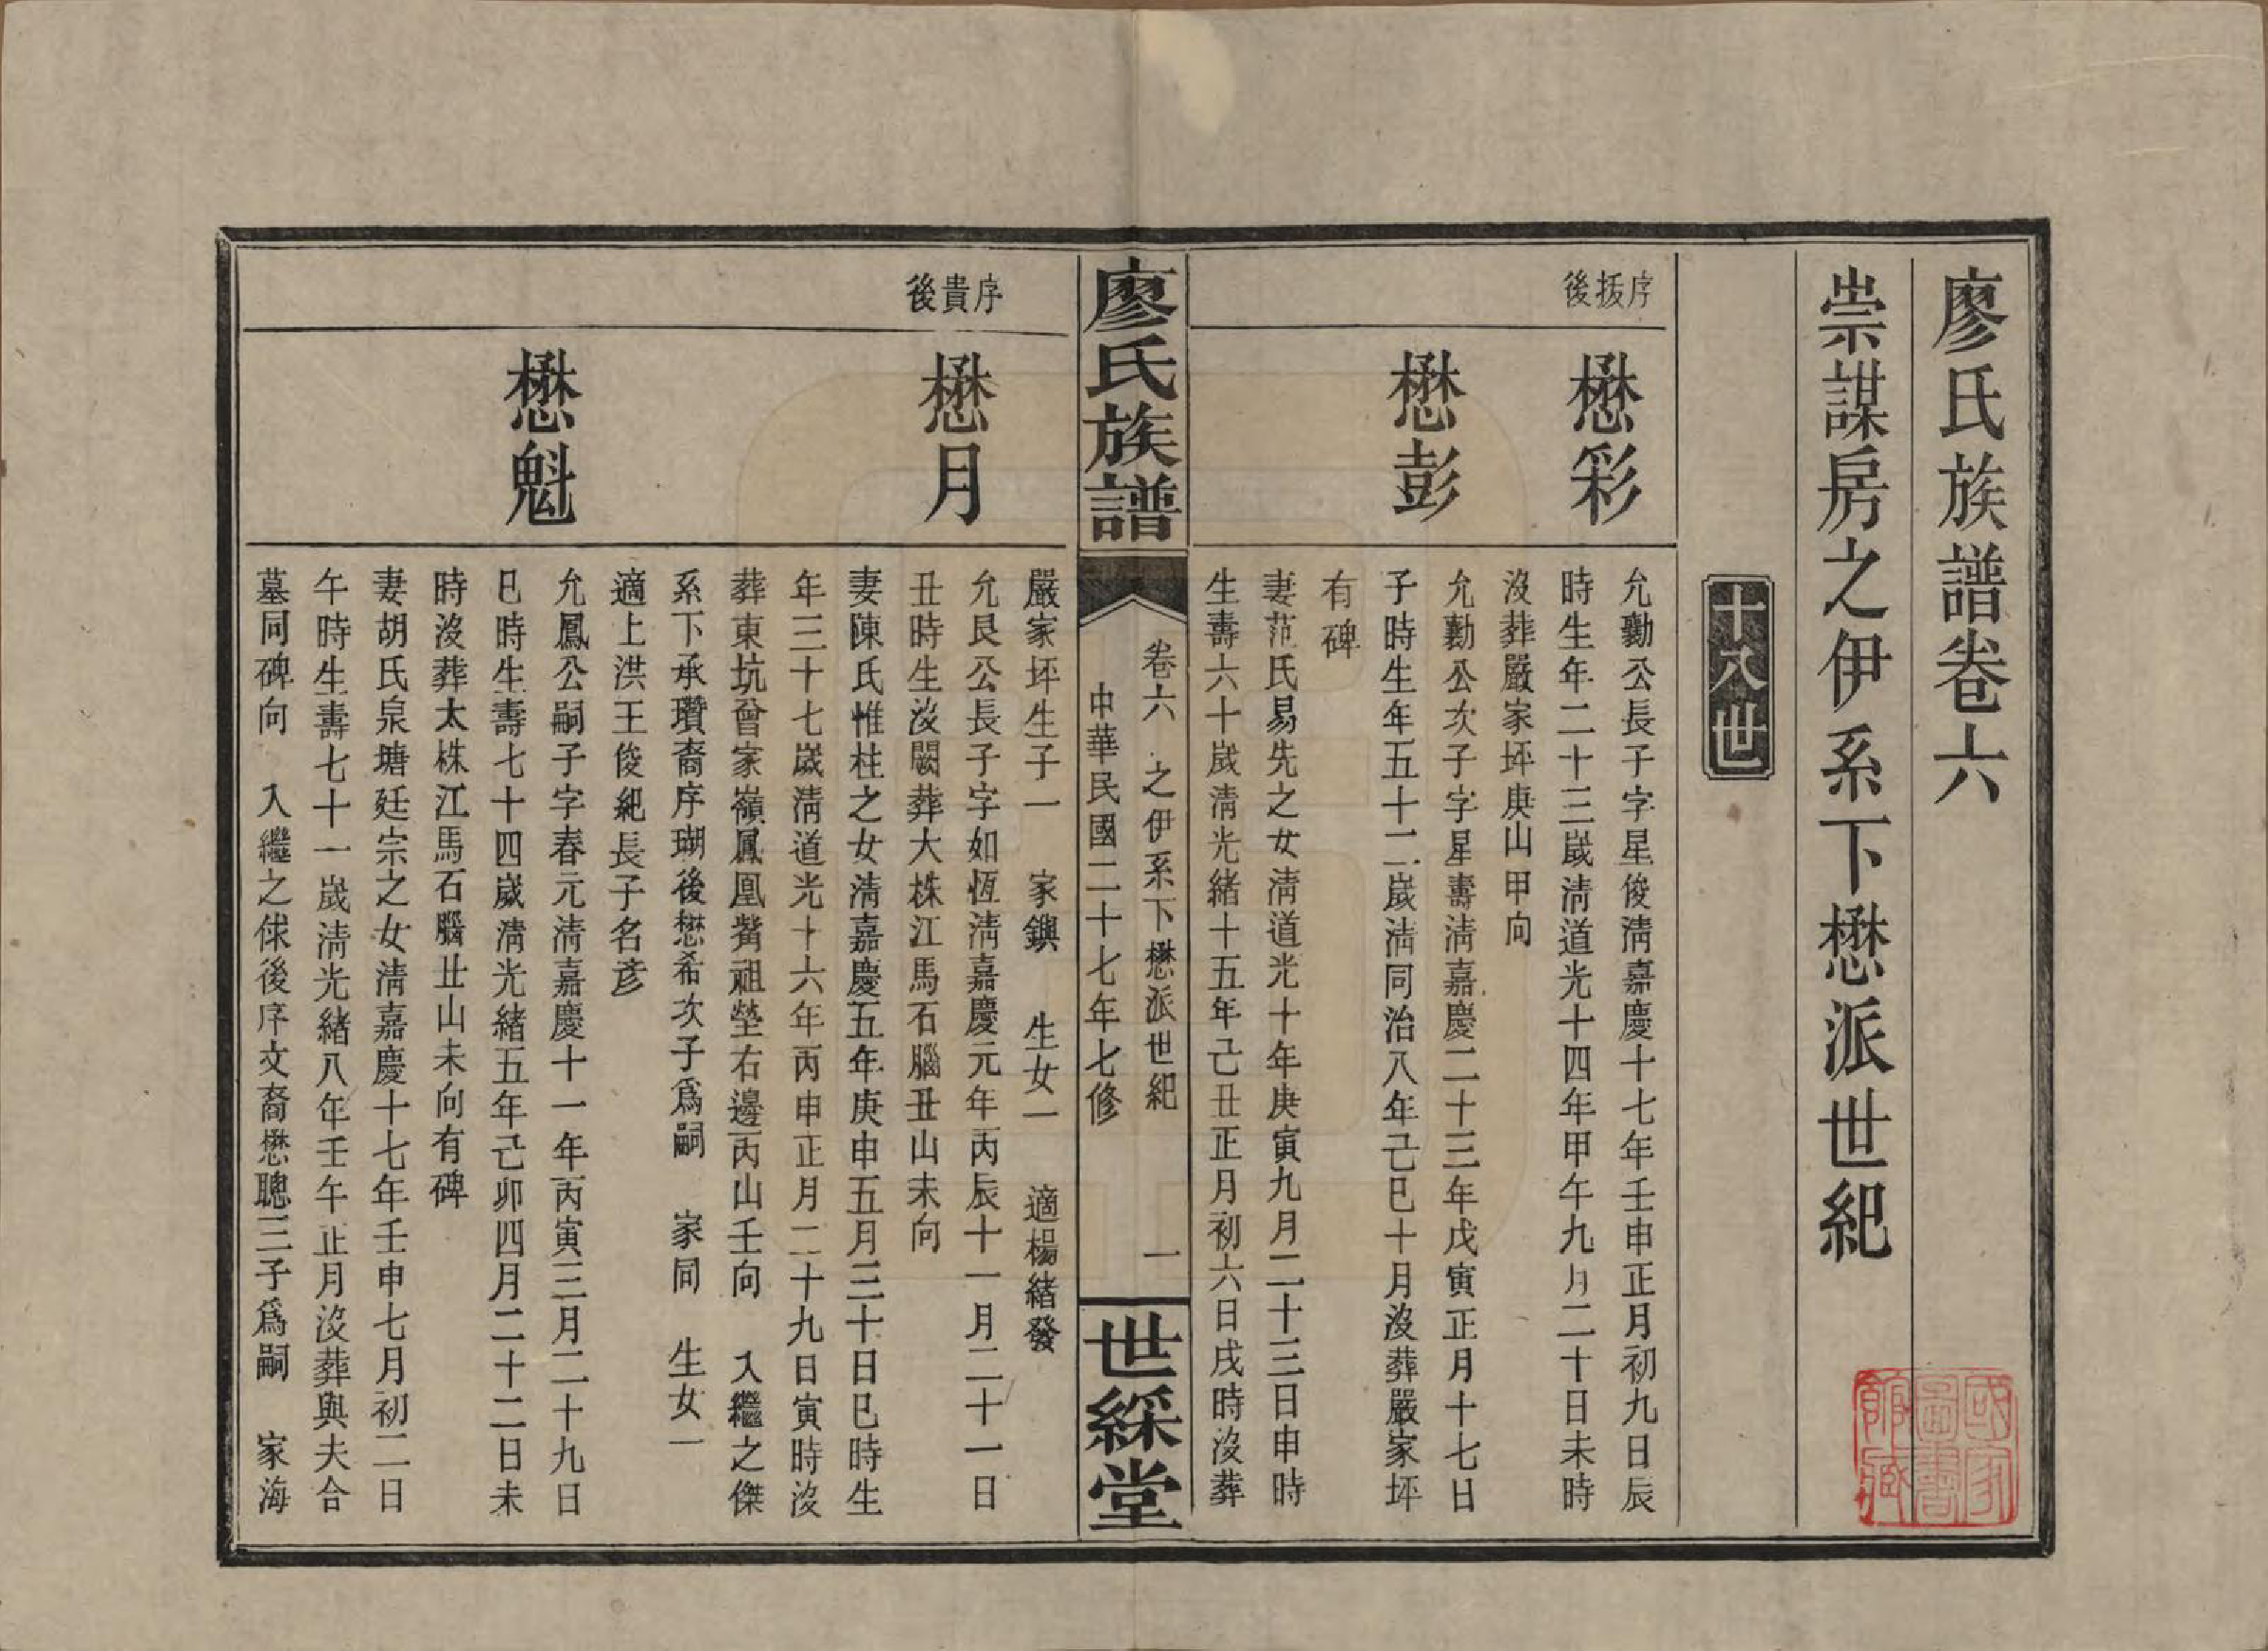 廖氏族譜卷六
崇謀房之伊系下懋派世紀
十八世
序拔後
懋彩
允勷公長子字星俊淸嘉慶十七年壬申正月初九日辰
時生年二十三歲淸道光十四年甲午九月二十日未時
沒葬嚴家坪庚山甲向
懋彭
允勷公次子字星壽淸嘉慶二十三年戊寅正月十七日
子時生年五十二歲淸同治八年己巳十月沒葬嚴家坪
有碑
妻范氏易先之女淸道光十年庚寅九月二十三日申時
生壽六十歲淸光緒十五年己丑正月初六日戌時沒葬
廖氏族譜
卷六 之伊系下懋派世紀 一
中華民國二十七年七修
世綵堂
嚴家坪生子一 家鐭 生女一 適楊緒發
序貴後
懋月
允艮公長子字如恆淸嘉慶元年丙辰十一月二十一日
丑時生沒闕葬大株江馬石腦丑山未向
妻陳氏惟柱之女淸嘉慶五年庚申五月三十日巳時生
年三十七歲淸道光十六年丙申正月二十九日寅時沒
葬東坑曾家嶺鳳凰嘴祖塋右邊丙山壬向 入繼之傑
系下承瓚裔序瑚後懋希次子爲嗣 家同 生女一
適上洪王俊紀長子名彥
懋魁
允鳳公嗣子字春元淸嘉慶十一年丙寅三月二十九日
巳時生壽七十四歲淸光緒五年己卯四月二十二日未
時沒葬大株江馬石腦丑山未向有碑
妻胡氏泉塘廷宗之女淸嘉慶十七年壬申七月初二日
午時生壽七十一歲淸光緒八年壬午正月沒葬與夫合
墓同碑向 入繼之俅後序文裔懋聰三子爲嗣 家海
國家圖書館藏